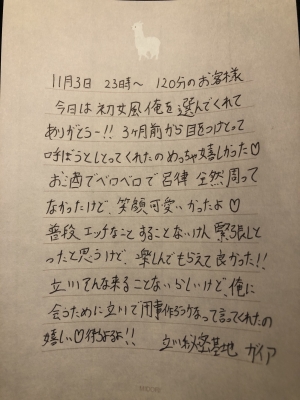 11月3日 23時〜 120分のお客様
今日は初女風俺を選んでくれて
ありがとうー!! 3ヶ月前から目をつけとって
呼ぼうとしとってくれたのめっちゃ嬉しかった♡
お酒でベロベロで呂律全然周って
なかったけど、笑顔可愛いかったよ♡
普段エッチなことすることないけん緊張しと
ったと思うけど、楽しんでもらえて良かった!!
立川てんな来ることないらしいけど、俺に
会うために立川で用事作ろうかなって言ってくれたの
嬉しい♡待ちよるよ!!
立川秘密基地 ガイア